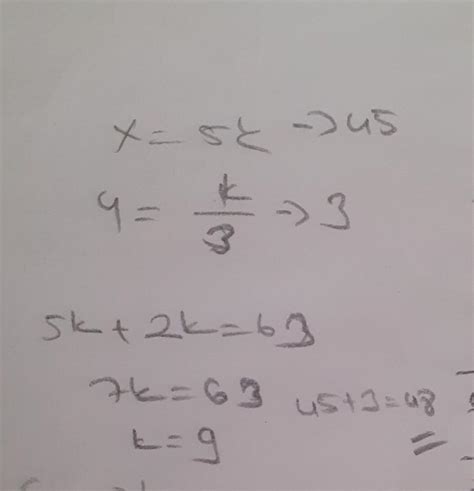 x = 5k → 45
y = k/3 → 3
5k + 2k = 63
7k = 63
45 + 3 = 48
k = 9